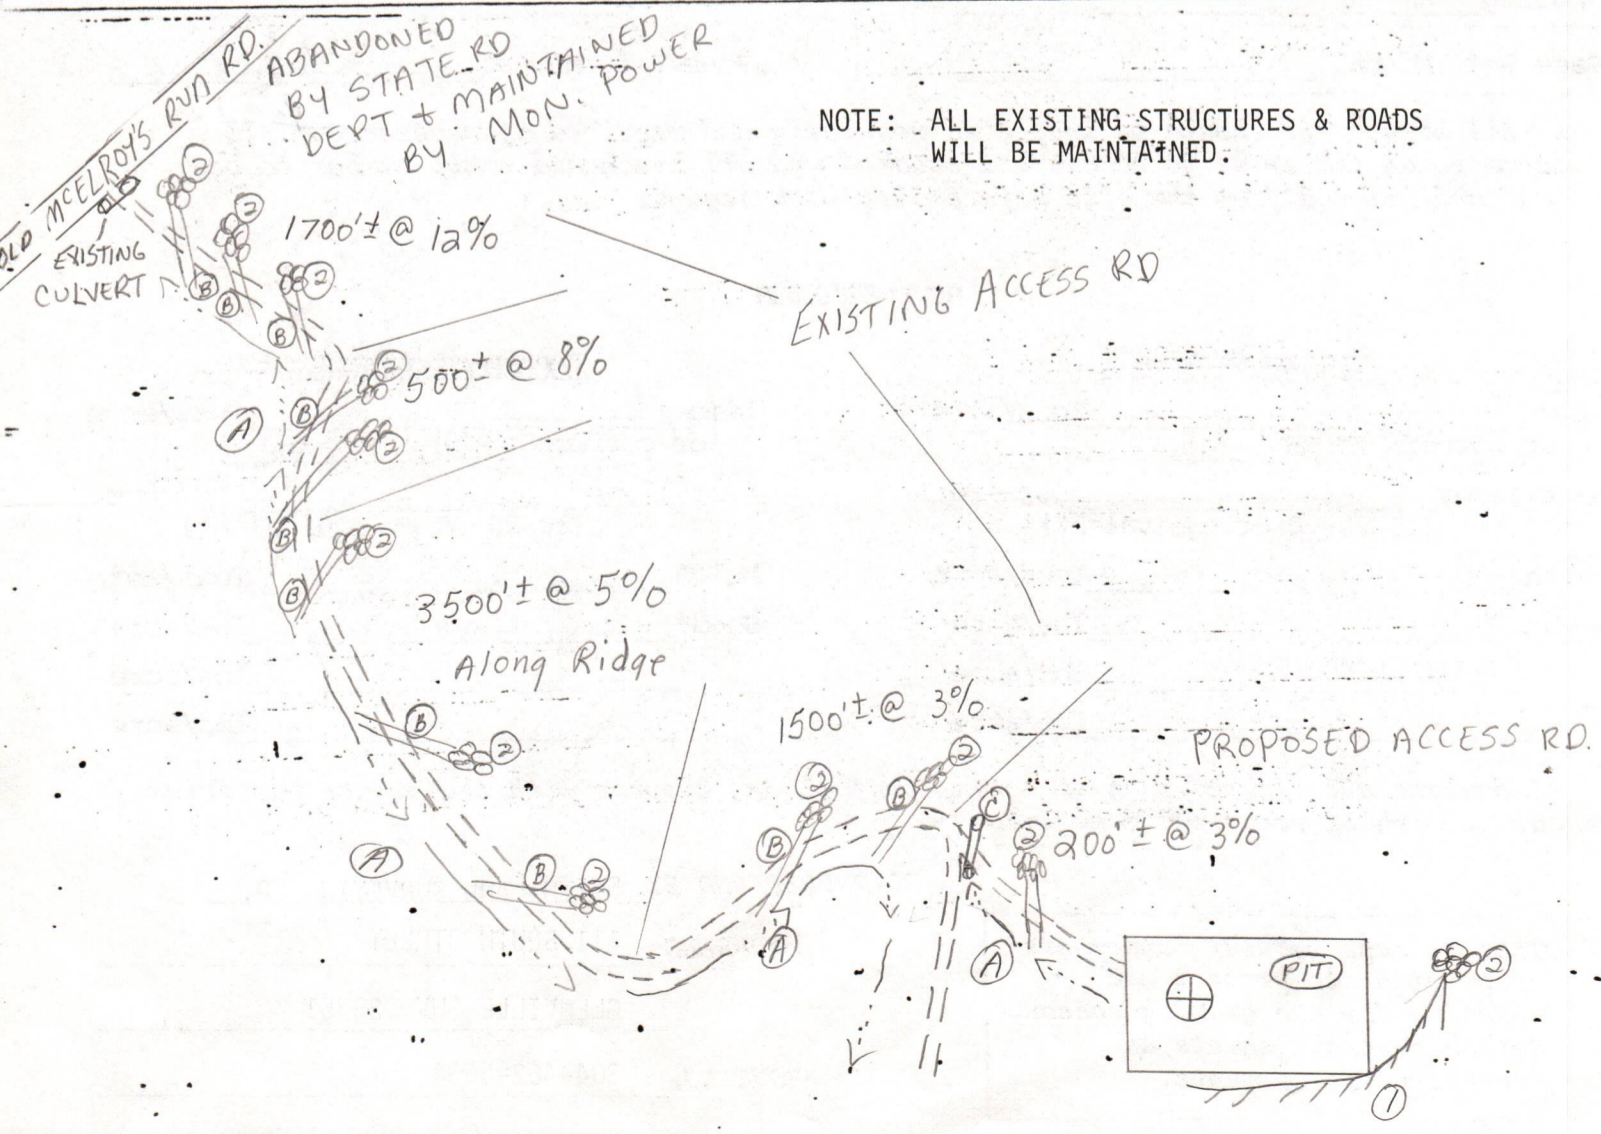 OLD MCELROY'S RUN RD.
ABANDONED
BY STATE RD
DEPT + MAINTAINED
BY MON. POWER
NOTE: ALL EXISTING STRUCTURES & ROADS
WILL BE MAINTAINED.
2
2
1700'± @ 12%
EXISTING
CULVERT
B
B
2
B
EXISTING ACCESS RD
2
500± @ 8%
B
A
2
B
2
B
3500'± @ 5%
Along Ridge
B
2
1500'± @ 3%
PROPOSED ACCESS RD.
2
2
B
C
B
2
200'± @ 3%
A
B
2
A
A
PIT
2
1